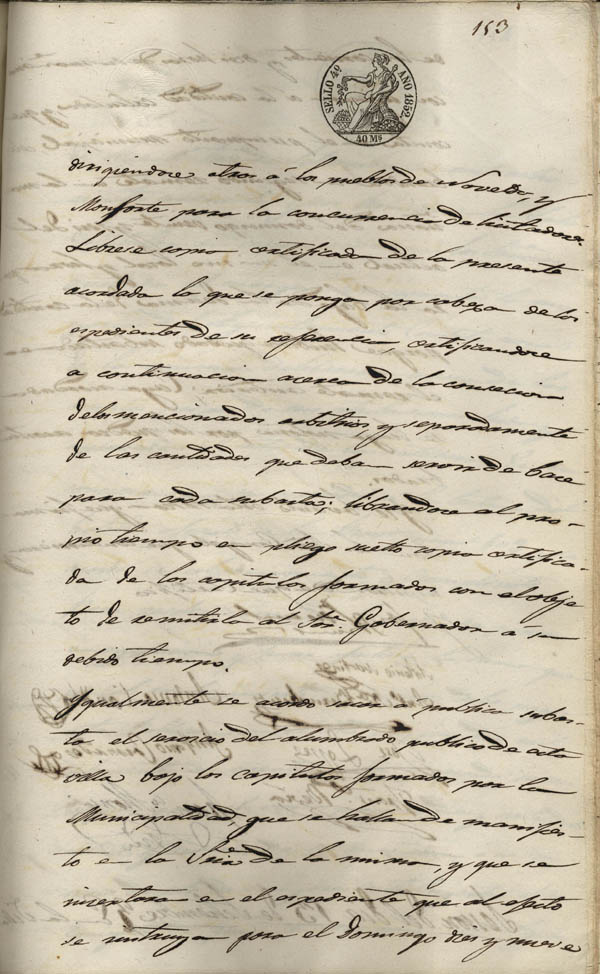 153
SELLO 4º AÑO 1852.
40 Ms
dirigiendose otros á los pueblos de Novelda, y
Monforte para la concurrencia de licitadores.
Líbrese copia certificada de la presente
acordada lo que se ponga por cabeza de los
espedientes de su referencia, certificandose
a continuacion acerca de la consecion
delos mencionados arbitrios, y separadamente
de las cantidades que deban servir de bace
para cada subasta; librandose al pro-
pio tiempo en pliego suelto copia certifica-
da de los capitulos formados con el obje-
to de remitirla al Sor. Gobernador á su
debido tiempo.
Igualmente se acordo sacar á publica subas-
ta el servicio del alumbrado publico de esta
villa bajo los capitulos formados por la
Municipalidad, que se hallan de manifies-
to en la Sria de la misma, y que se
insertara en el espediente que al efecto
se instruya para el Domingo dies y nueve